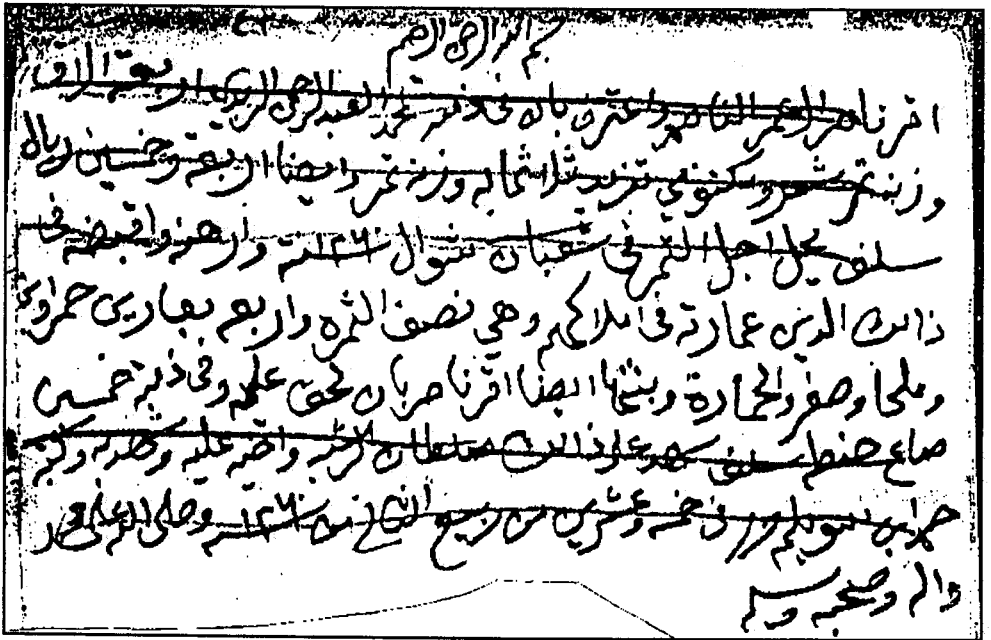 بسم الله الرحمن الرحيم
اقر ناصر العمر الناصر واعترف بان في ذمته لمحمد العبدالرحمن الربدي اربعة الاف
وزنة تمر شقر ومكتومي تزيد ثلاثمايه وزنة تمر وايضا اربعة وخمسين ريال
سلف يحل اجل التمر في شعبان شوال ١٢٦١ سنة وارهنه واقبضه في
ذالك الدين عمارته في املاكهم وهي نصف الثمره واربع بعارين حمراوين
وملحا وصفر والحماره وبنتها ايضا اقر ناصر بان لحق عليه وفي ذمته خمسين
صاع حنطه سلف شهد على ذالك سلطان الرشيد واخيه عليه وشهد به وكتبه
سويلم في خمسة وعشرين من ربيع الثاني من سنة ١٢٦١ وصلى الله على محمد
واله وصحبه وسلم